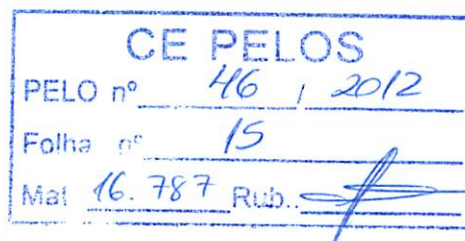 CE PELOS
PELO nº 46 / 2012
Folha nº 15
Mat 16.787 Rub..